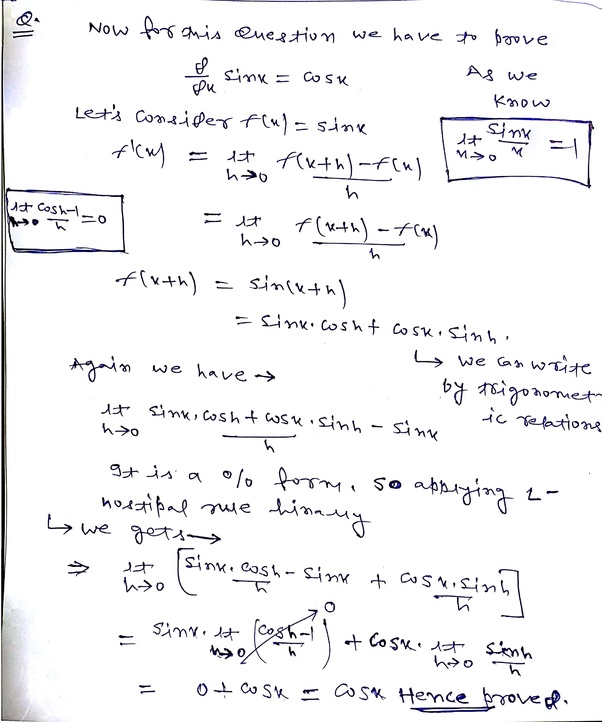 Q.
Now for this Question we have to prove
d/dx sinx = cosx
As we
know
lt x→0 sinx/x = 1
Let's consider f(x) = sinx
f'(x) = lt h→0 f(x+h)-f(x)/h
lt h→0 cosh-1/h = 0
= lt h→0 f(x+h) - f(x)/h
f(x+h) = sin(x+h)
= sinx. cosh + cosx. sinh.
↳ we can write
by trigonomet-
ic relations
Again we have →
lt h→0 sinx. cosh + cosx. sinh - sinx/h
It is a 0/0 form. so applying L-
hostipal rule
↳ we gets →
⇒ lt h→0 [sinx. cosh - sinx/h + cosx. sinh/h]
= sinx. lt h→0 (cosh-1/h) 0 + cosx. lt h→0 sinh/h
= 0 + cosx = cosx Hence proved.